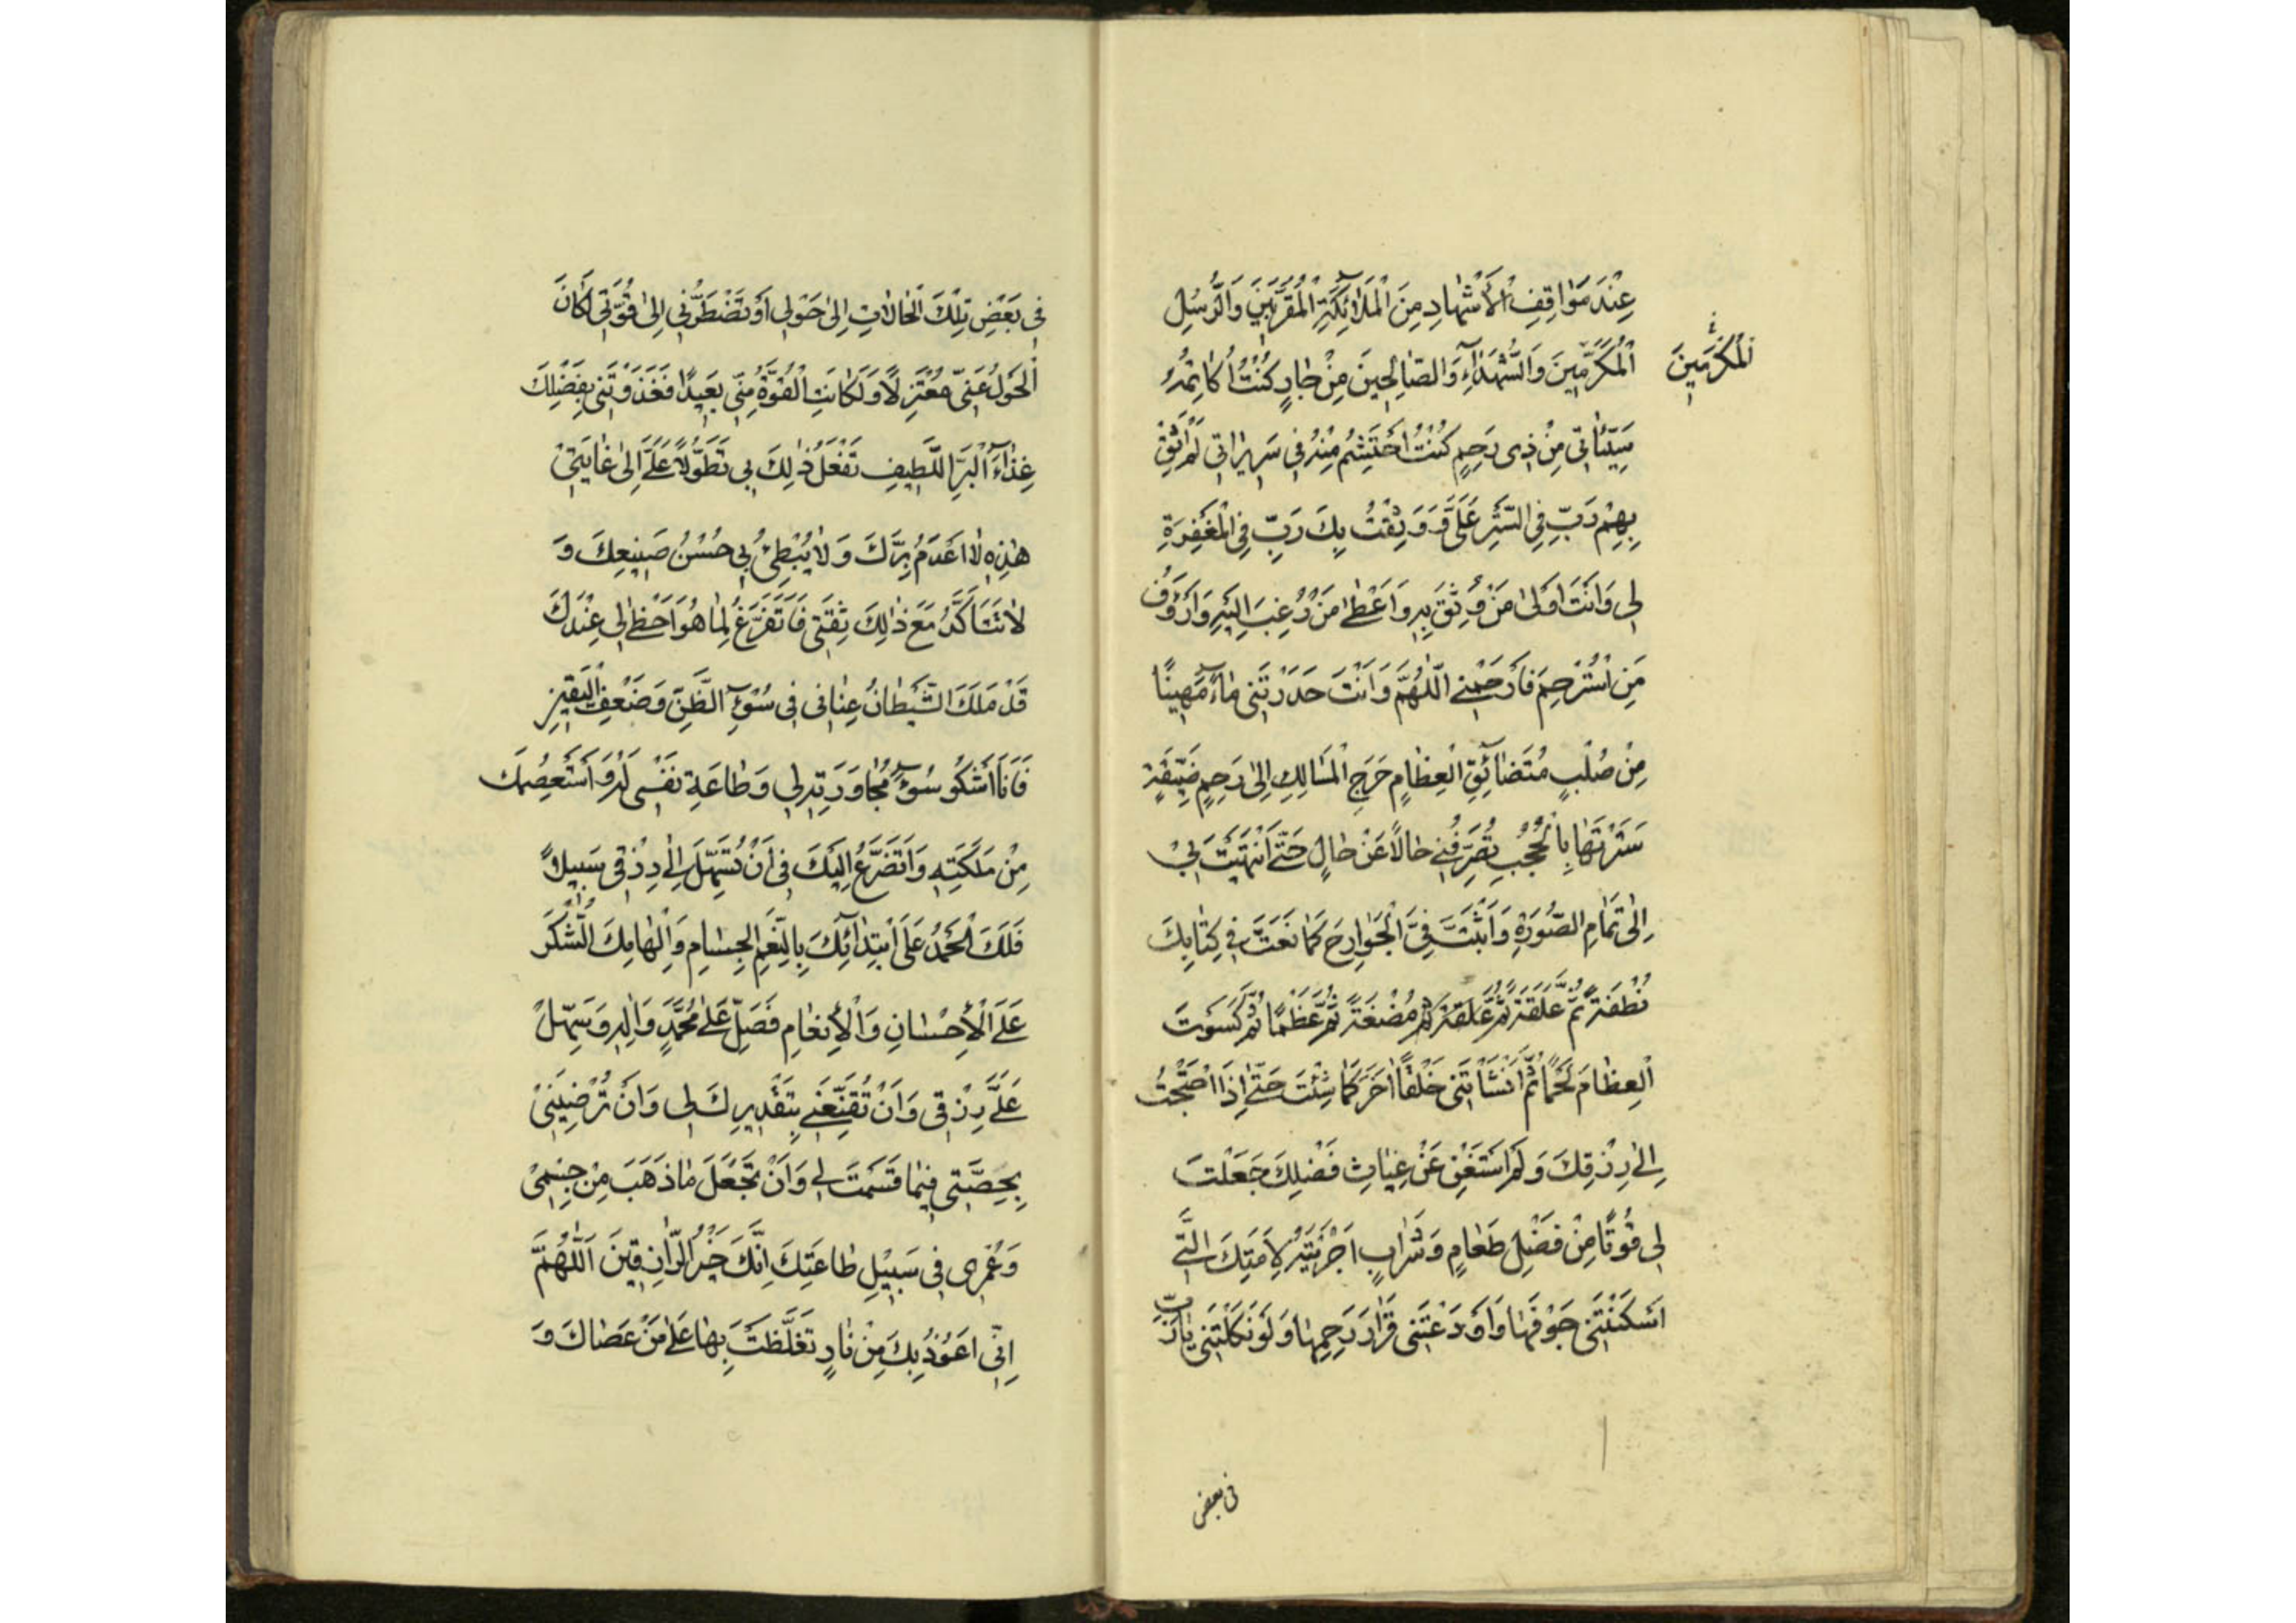 عِنْدَ مَوٰاقِفِ الْأَشْهٰادِ مِنَ الْمَلٰآئِكَةِ الْمُقَرَّبِينَ وَالرُّسُلِ
الْمُكَرَّمِينَ وَالشُّهَدٰآءِ وَالصّٰالِحِينَ مِنْ جٰارٍ كُنْتُ اُكٰاتِمُهُ
الْمُكَرَّمِينَ
سَيِّئٰاتِى مِنْ ذِى رَحِمٍ كُنْتُ اَحْتَشِمُ مِنْهُ فِى سَرِيرٰاتِى لَمْ اَثِقْ
بِهِمْ رَبِّ فِى السَّتْرِ عَلَىَّ وَ وَثِقْتُ بِكَ رَبِّ فِى الْمَغْفِرَةِ
لِى وَاَنْتَ اَوْلىٰ مَنْ وُثِقَ بِهِ وَاَعْطىٰ مَنْ رُغِبَ اِلَيْهِ وَاَرْؤَفُ
مَنِ اسْتُرْحِمَ فَارْحَمْنِى اَللّٰهُمَّ وَاَنْتَ حَدَرْتَنِى مٰآءً مَهِينًا
مِنْ صُلْبٍ مُتَضٰائِقِ الْعِظٰامِ حَرَجِ الْمَسٰالِكِ اِلىٰ رَحِمٍ ضَيِّقَةٍ
سَتَرْتَهٰا بِالْحُجُبِ تُصَرِّفُنِى حٰالًا عَنْ حٰالٍ حَتّىٰ اَنْتَهَيْتَ بِى
اِلىٰ تَمٰامِ الصُّورَةِ وَاَثْبَتَّ فِىَّ الْجَوٰارِحَ كَمٰا نَعَتَّ فِى كِتٰابِكَ
نُطْفَةً ثُمَّ عَلَقَةً ثُمَّ عَلَقَةً ثُمَّ مُضْغَةً ثُمَّ عَظْمًا ثُمَّ كَسَوْتَ
الْعِظٰامَ لَحْمًا ثُمَّ اَنْشَأْتَنِى خَلْقًا اٰخَرَ كَمٰا شِئْتَ حَتّىٰ اِذَا احْتَجْتُ
اِلىٰ رِزْقِكَ وَلَمْ اَسْتَغْنِ عَنْ غِيٰاثِ فَضْلِكَ جَعَلْتَ
لِى قُوتًا مِنْ فَضْلِ طَعٰامٍ وَشَرٰابٍ اَجْرَيْتَهُ لِاَمَتِكَ الَّتِى
اَسْكَنْتَنِى جَوْفَهٰا وَاَوْدَعْتَنِى قَرٰارَ رَحِمِهٰا وَلَوْ تَكِلْنِى يٰا رَبِّ
فى بعض
فِى بَعْضِ تِلْكَ الْحٰالاٰتِ اِلىٰ حَوْلِى اَوْ تَضْطَرُّنِى اِلىٰ قُوَّتِى لَكٰانَ
الْحَوْلُ عَنِّى مُعْتَزِلًا وَلَكٰانَتِ الْقُوَّةُ مِنِّى بَعِيدًا فَغَذَوْتَنِى بِفَضْلِكَ
غِذٰآءَ الْبَرِّ اللَّطِيفِ تَفْعَلُ ذٰلِكَ بِى تَطَوُّلًا عَلَىَّ اِلىٰ غٰايَتِى
هٰذِهِ لاٰ اَعْدَمُ بِرَّكَ وَلاٰ يُبْطِئُ بِى حُسْنُ صَنِيعِكَ وَ
لاٰ تَتَأَكَّدُ مَعَ ذٰلِكَ ثِقَتِى فَأَتَفَرَّغُ لِمٰا هُوَ اَحْظىٰ لِى عِنْدَكَ
قَدْ مَلَكَ الشَّيْطٰانُ عِنٰانِى فِى سُوٓءِ الظَّنِّ وَضَعْفِ الْيَقِينِ
فَأَنَا اَشْكُو سُوٓءَ مُجٰاوَرَتِهِ لِى وَطٰاعَةِ نَفْسِى لَهُ وَاَسْتَعْصِمُكَ
مِنْ مَلَكَتِهِ وَاَتَضَرَّعُ اِلَيْكَ فِى اَنْ تُسَهِّلَ اِلىٰ رِزْقِى سَبِيلًا
فَلَكَ الْحَمْدُ عَلَى ابْتِدٰآئِكَ بِالنِّعَمِ الْجِسٰامِ وَاِلْهٰامِكَ الشُّكْرَ
عَلَى الْاِحْسٰانِ وَالْاِنْعٰامِ فَصَلِّ عَلىٰ مُحَمَّدٍ وَاٰلِهِ وَسَهِّلْ
عَلَىَّ رِزْقِى وَاَنْ تُقَنِّعَنِى بِتَقْدِيرِكَ لِى وَاَنْ تُرْضِيَنِى
بِحِصَّتِى فِيمٰا قَسَمْتَ لِى وَاَنْ تَجْعَلَ مٰا ذَهَبَ مِنْ جِسْمِى
وَعُمْرِى فِى سَبِيلِ طٰاعَتِكَ اِنَّكَ خَيْرُ الرّٰازِقِينَ اَللّٰهُمَّ
اِنِّى اَعُوذُ بِكَ مِنْ نٰارٍ تَغَلَّظْتَ بِهٰا عَلىٰ مَنْ عَصٰاكَ وَ